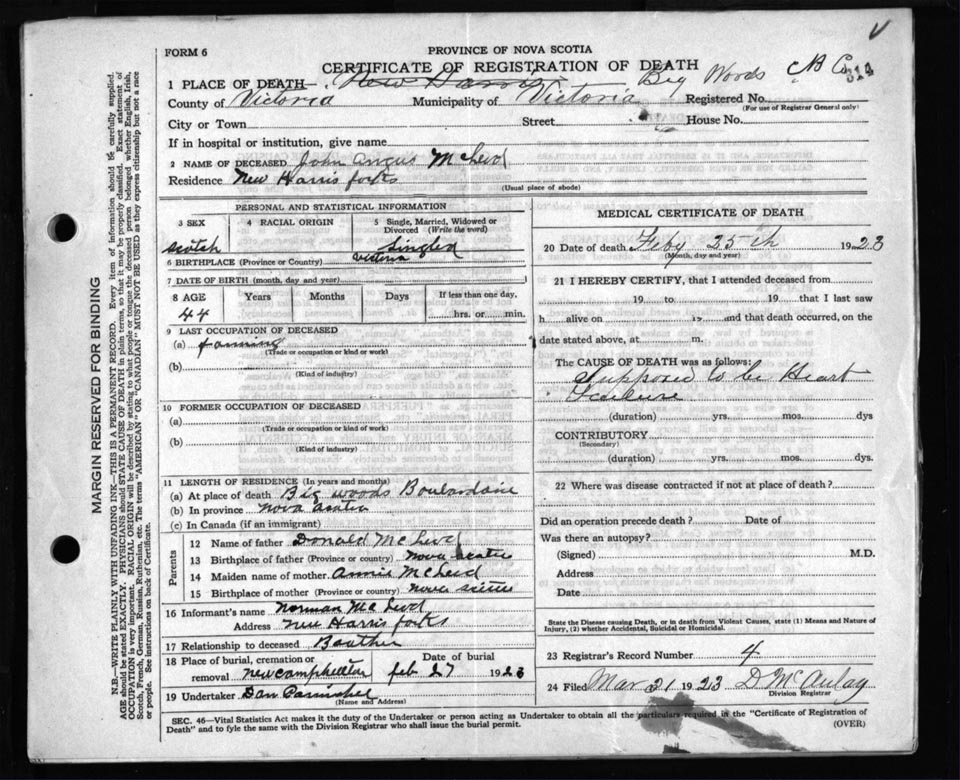 FORM 6
PROVINCE OF NOVA SCOTIA
CERTIFICATE OF REGISTRATION OF DEATH
1 PLACE OF DEATH New Harris Big Woods CB Co.
314
County of Victoria Municipality of Victoria Registered No.
(For use of Registrar General only)
City or Town Street House No.
If in hospital or institution, give name
2 NAME OF DECEASED John Angus McLeod
Residence New Harris forks
(Usual place of abode)
PERSONAL AND STATISTICAL INFORMATION
3 SEX 4 RACIAL ORIGIN 5 Single, Married, Widowed or Divorced (Write the word)
scotch Singled
6 BIRTHPLACE (Province or Country) Victoria
7 DATE OF BIRTH (month, day and year)
8 AGE Years Months Days If less than one day,
44 hrs. or min.
9 LAST OCCUPATION OF DECEASED
(a) farming
(Trade or occupation or kind or work)
(b)
(Kind of industry)
10 FORMER OCCUPATION OF DECEASED
(a)
(Trade or occupation or kind of work)
(b)
(Kind of industry)
11 LENGTH OF RESIDENCE (In years and months)
(a) At place of death Big woods Boulardarie
(b) In province nova scotia
(c) In Canada (if an immigrant)
Parents
12 Name of father Donald McLeod
13 Birthplace of father (Province or country) nova scotia
14 Maiden name of mother Annie McLeod
15 Birthplace of mother (Province or country) nova scotia
16 Informant's name Norman McLeod
Address new Harris forks
17 Relationship to deceased Brother
18 Place of burial, cremation or removal new campbellton Date of burial feb 27 1923
19 Undertaker Dan
(Name and Address)
MEDICAL CERTIFICATE OF DEATH
20 Date of death Feby 25th 1923
(Month, day and year)
21 I HEREBY CERTIFY, that I attended deceased from
19 to 19 that I last saw
h alive on 19 and that death occurred, on
date stated above, at m.
The CAUSE OF DEATH was as follows:
Supposed to be Heart
Failure
(duration) yrs. mos. dys
CONTRIBUTORY
(Secondary)
(duration) yrs. mos. dys.
22 Where was disease contracted if not at place of death?
Did an operation precede death? Date of
Was there an autopsy?
(Signed) M.D.
Address
Date
State the Disease causing Death, or in death from Violent Causes, state (1) Means and Nature of
Injury, (2) whether Accidental, Suicidal or Homicidal.
23 Registrar's Record Number 4
24 Filed Mar 31 1923 D McAulay
Division Registrar
SEC. 46—Vital Statistics Act makes it the duty of the Undertaker or person acting as Undertaker to obtain all the particulars required in the "Certificate of Registration of
Death" and to fyle the same with the Division Registrar who shall issue the burial permit. (OVER)
MARGIN RESERVED FOR BINDING
N.B.—WRITE PLAINLY WITH UNFADING INK—THIS IS A PERMANENT RECORD. Every item of information should be carefully supplied.
AGE should be stated EXACTLY. PHYSICIANS should STATE CAUSE OF DEATH in plain terms, so that it may be properly classified. Exact statement of
OCCUPATION is very important. RACIAL ORIGIN will be described by stating to what people or tongue the deceased person belonged whether English, Irish,
Scotch, French, German, Russian, Ruthenian, etc. The terms "AMERICAN" OR "CANADIAN" MUST NOT BE USED as they express citizenship but not a race
or people. See instructions on back of Certificate.